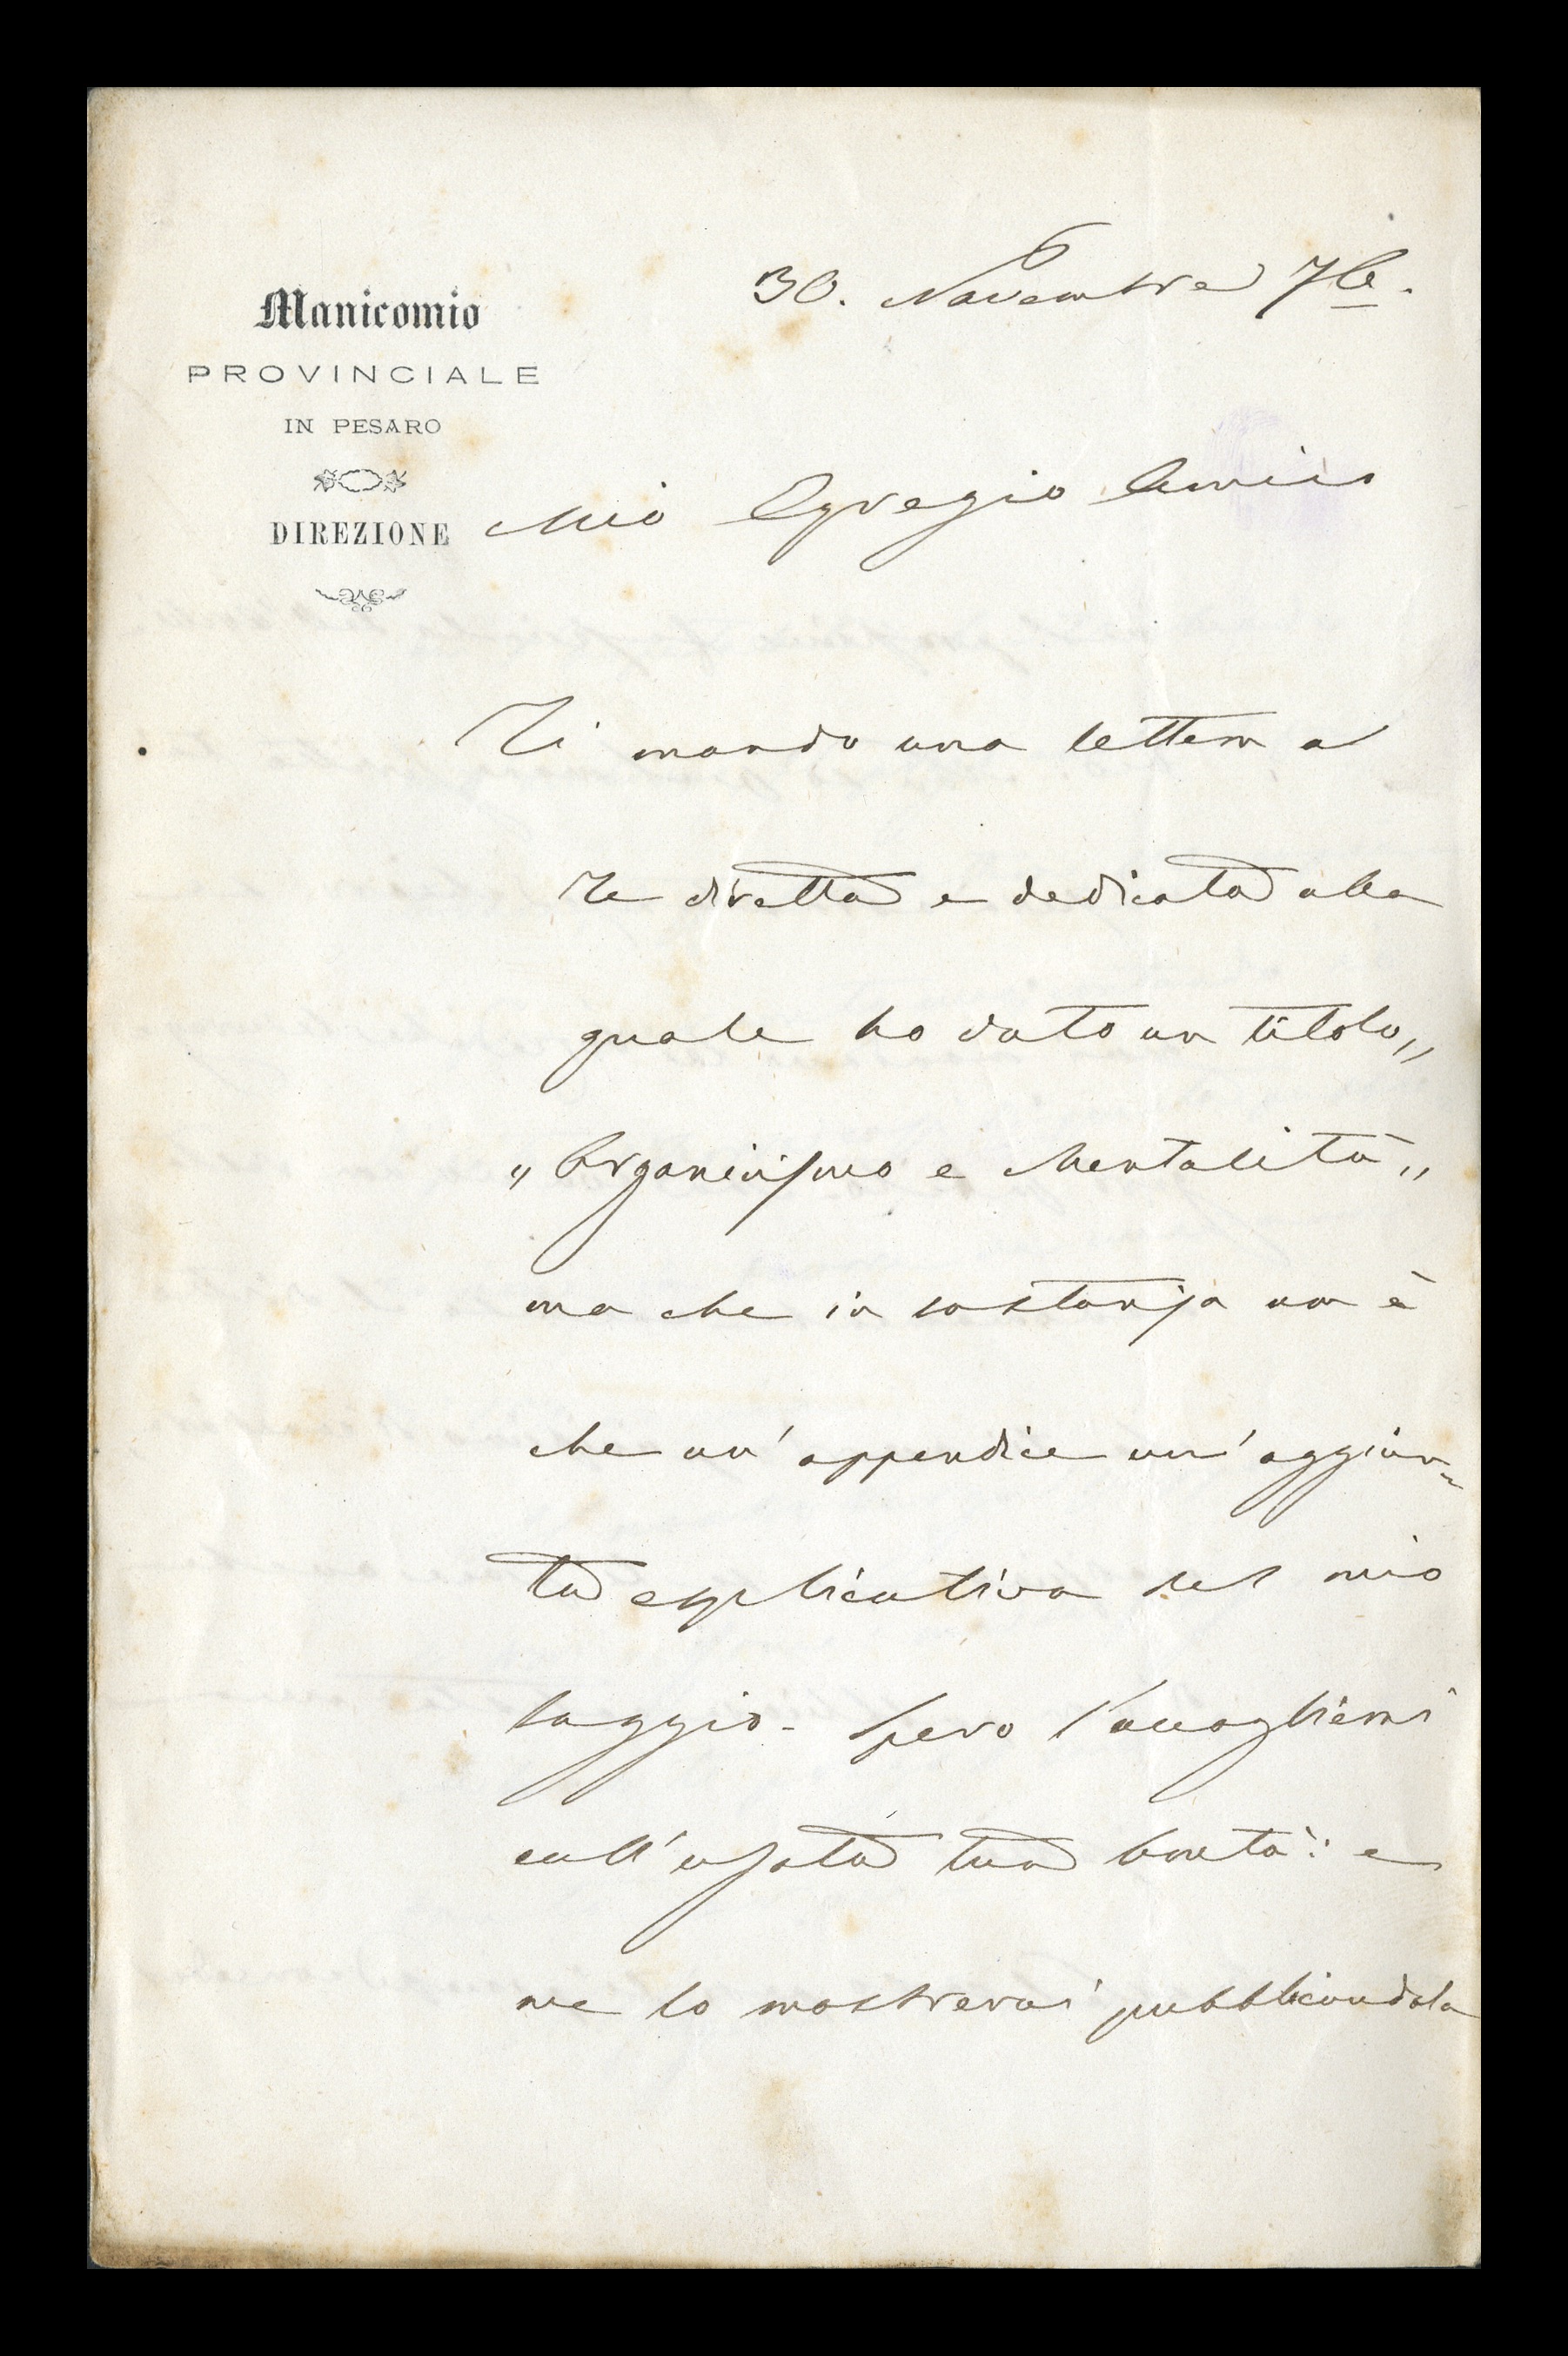 Manicomio
PROVINCIALE
IN PESARO
DIREZIONE
30. Novembre 76.
Mio Egregio Amico
Ti mando una lettera a
Te diretta e dedicata alla
quale ho dato un titolo „
„ Organicismo e Mentalità „
ma che in sostanza non è
che un' appendice un' aggiun=
ta esplicativa del mio
saggio - Spero l'accoglierai
coll' usata tua bontà: e
me lo mostrerai pubblicandola